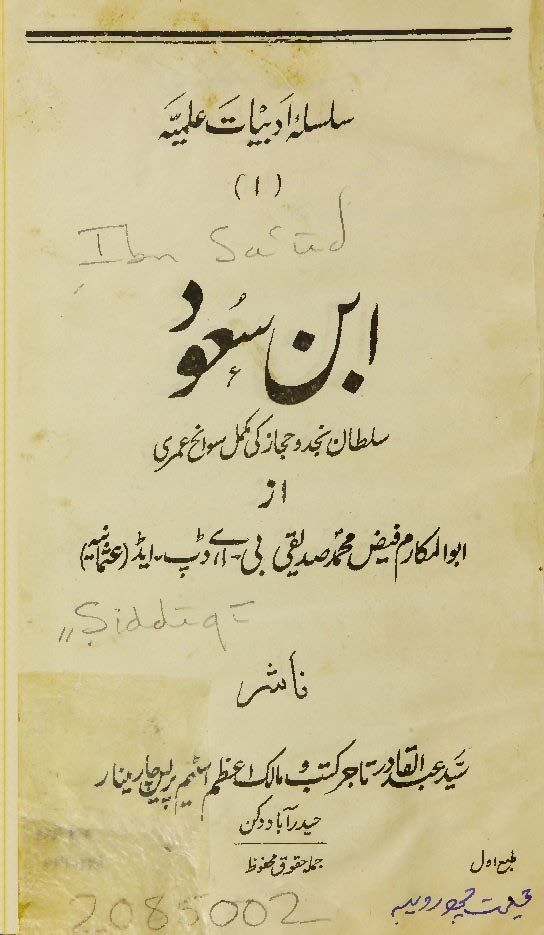 سلسلۂ ادبیات علمیہ
(۱)
Ibn Saʿūd
ابن سعود
سلطان نجد و حجاز کی مکمل سوانح عمری
از
ابو المکارم فیض محمد صدیقی بی-اے، ڈپ-ایڈ (عثمانیہ)
"Siddīqī
ناشر
سید عبد القادر تاجر کتب و مالک اعظم اسٹیم پریس چارمینار
حیدرآباد دکن
طبع اول
جملہ حقوق محفوظ
قیمت چھ روپیہ
2085002